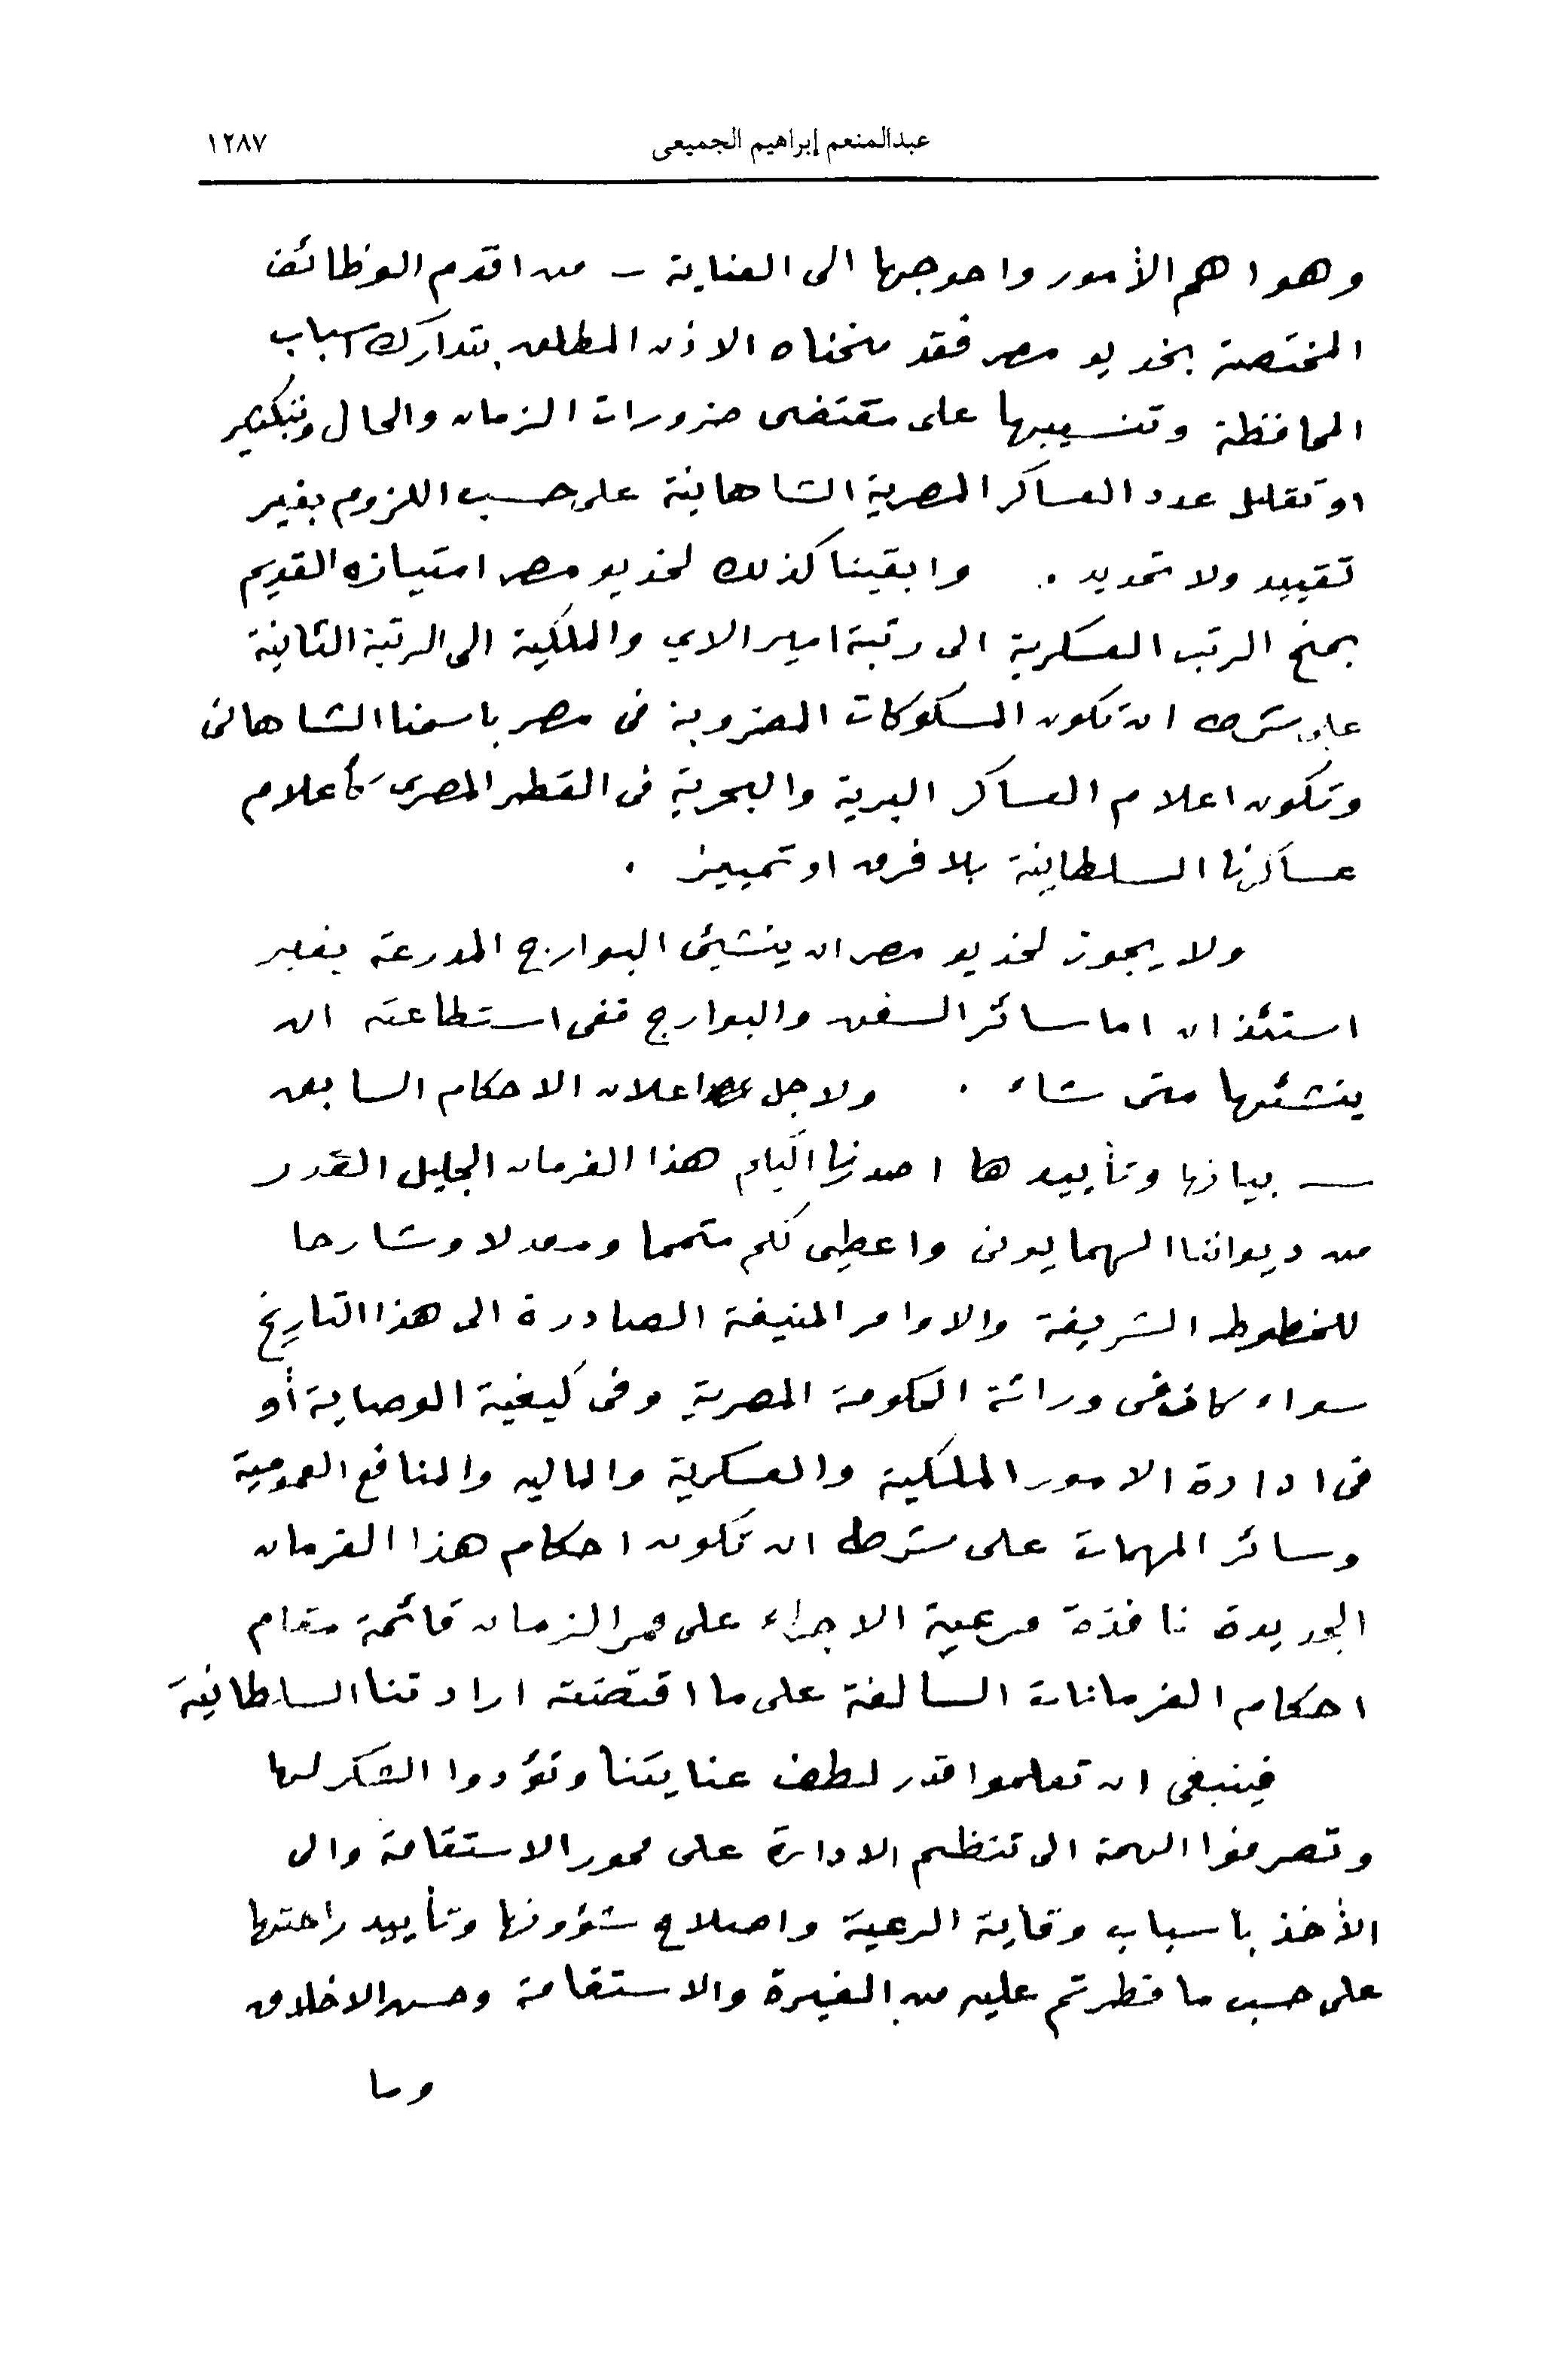 عبدالمنعم إبراهيم الجميعى ١٢٨٧
وهو اهم الأمور واحوجها الى العناية – من اقدم الوظائف
المختصة بخديو مصر فقد منحناه الاذن المطلق بتدارك اسباب
المحافظة وتنسيبها على مقتضى ضرورات الزمان والحال وبتكثير
او تقليل عدد العساكر المصرية الشاهانية على حسب اللزوم بغير
تقييد ولا تحديد . وابقينا كذلك لخديو مصر امتيازه القديم
بمنح الرتب العسكرية الى رتبة اميرالاي والملكية الى الرتبة الثانية
على شرط ان تكون المسكوكات المضروبة فى مصر باسمنا الشاهانى
وتكون اعلام العساكر البرية والبحرية فى القطر المصرى كأعلام
عساكرنا السلطانية بلا فرق او تمييز .
ولا يجوز لخديو مصر ان ينشئ البوارج المدرعة بغير
استئذان اما سائر السفن والبوارج ففى استطاعته ان
ينشئها متى شاء . ولاجل اعلان الاحكام السابق
– بيانها وتأييدها اصدرنا اليكم هذا الفرمان الجليل القدر
من ديواننا الهمايونى واعطى لكم متمما ومعدلا وشارحا
للخطوط الشريفة والاوامر المنيفة الصادرة الى هذا التاريخ
سواء كان فى وراثة الحكومة المصرية وفى كيفية الوصاية أو
فى ادارة الامور الملكية والعسكرية والماليه والمنافع العمومية
وسائر المهمات على شرط ان تكون احكام هذا الفرمان
الجديدة نافذة مرعية الاجراء على ممر الزمان قائمة مقام
احكام الفرمانات السالفة على ما اقتضته ارادتنا السلطانية
فينبغى ان تعلموا قدر لطف عنايتنا وتؤدوا الشكر لها
وتصرفوا الهمة الى تنظيم الادارة على محور الاستقامة والى
الأخذ باسباب وقاية الرعية واصلاح شؤونها وتأييد راحتها
على حسب ما فطرتم عليه من الغيرة والاستقامة وحسن الاخلاق
وما